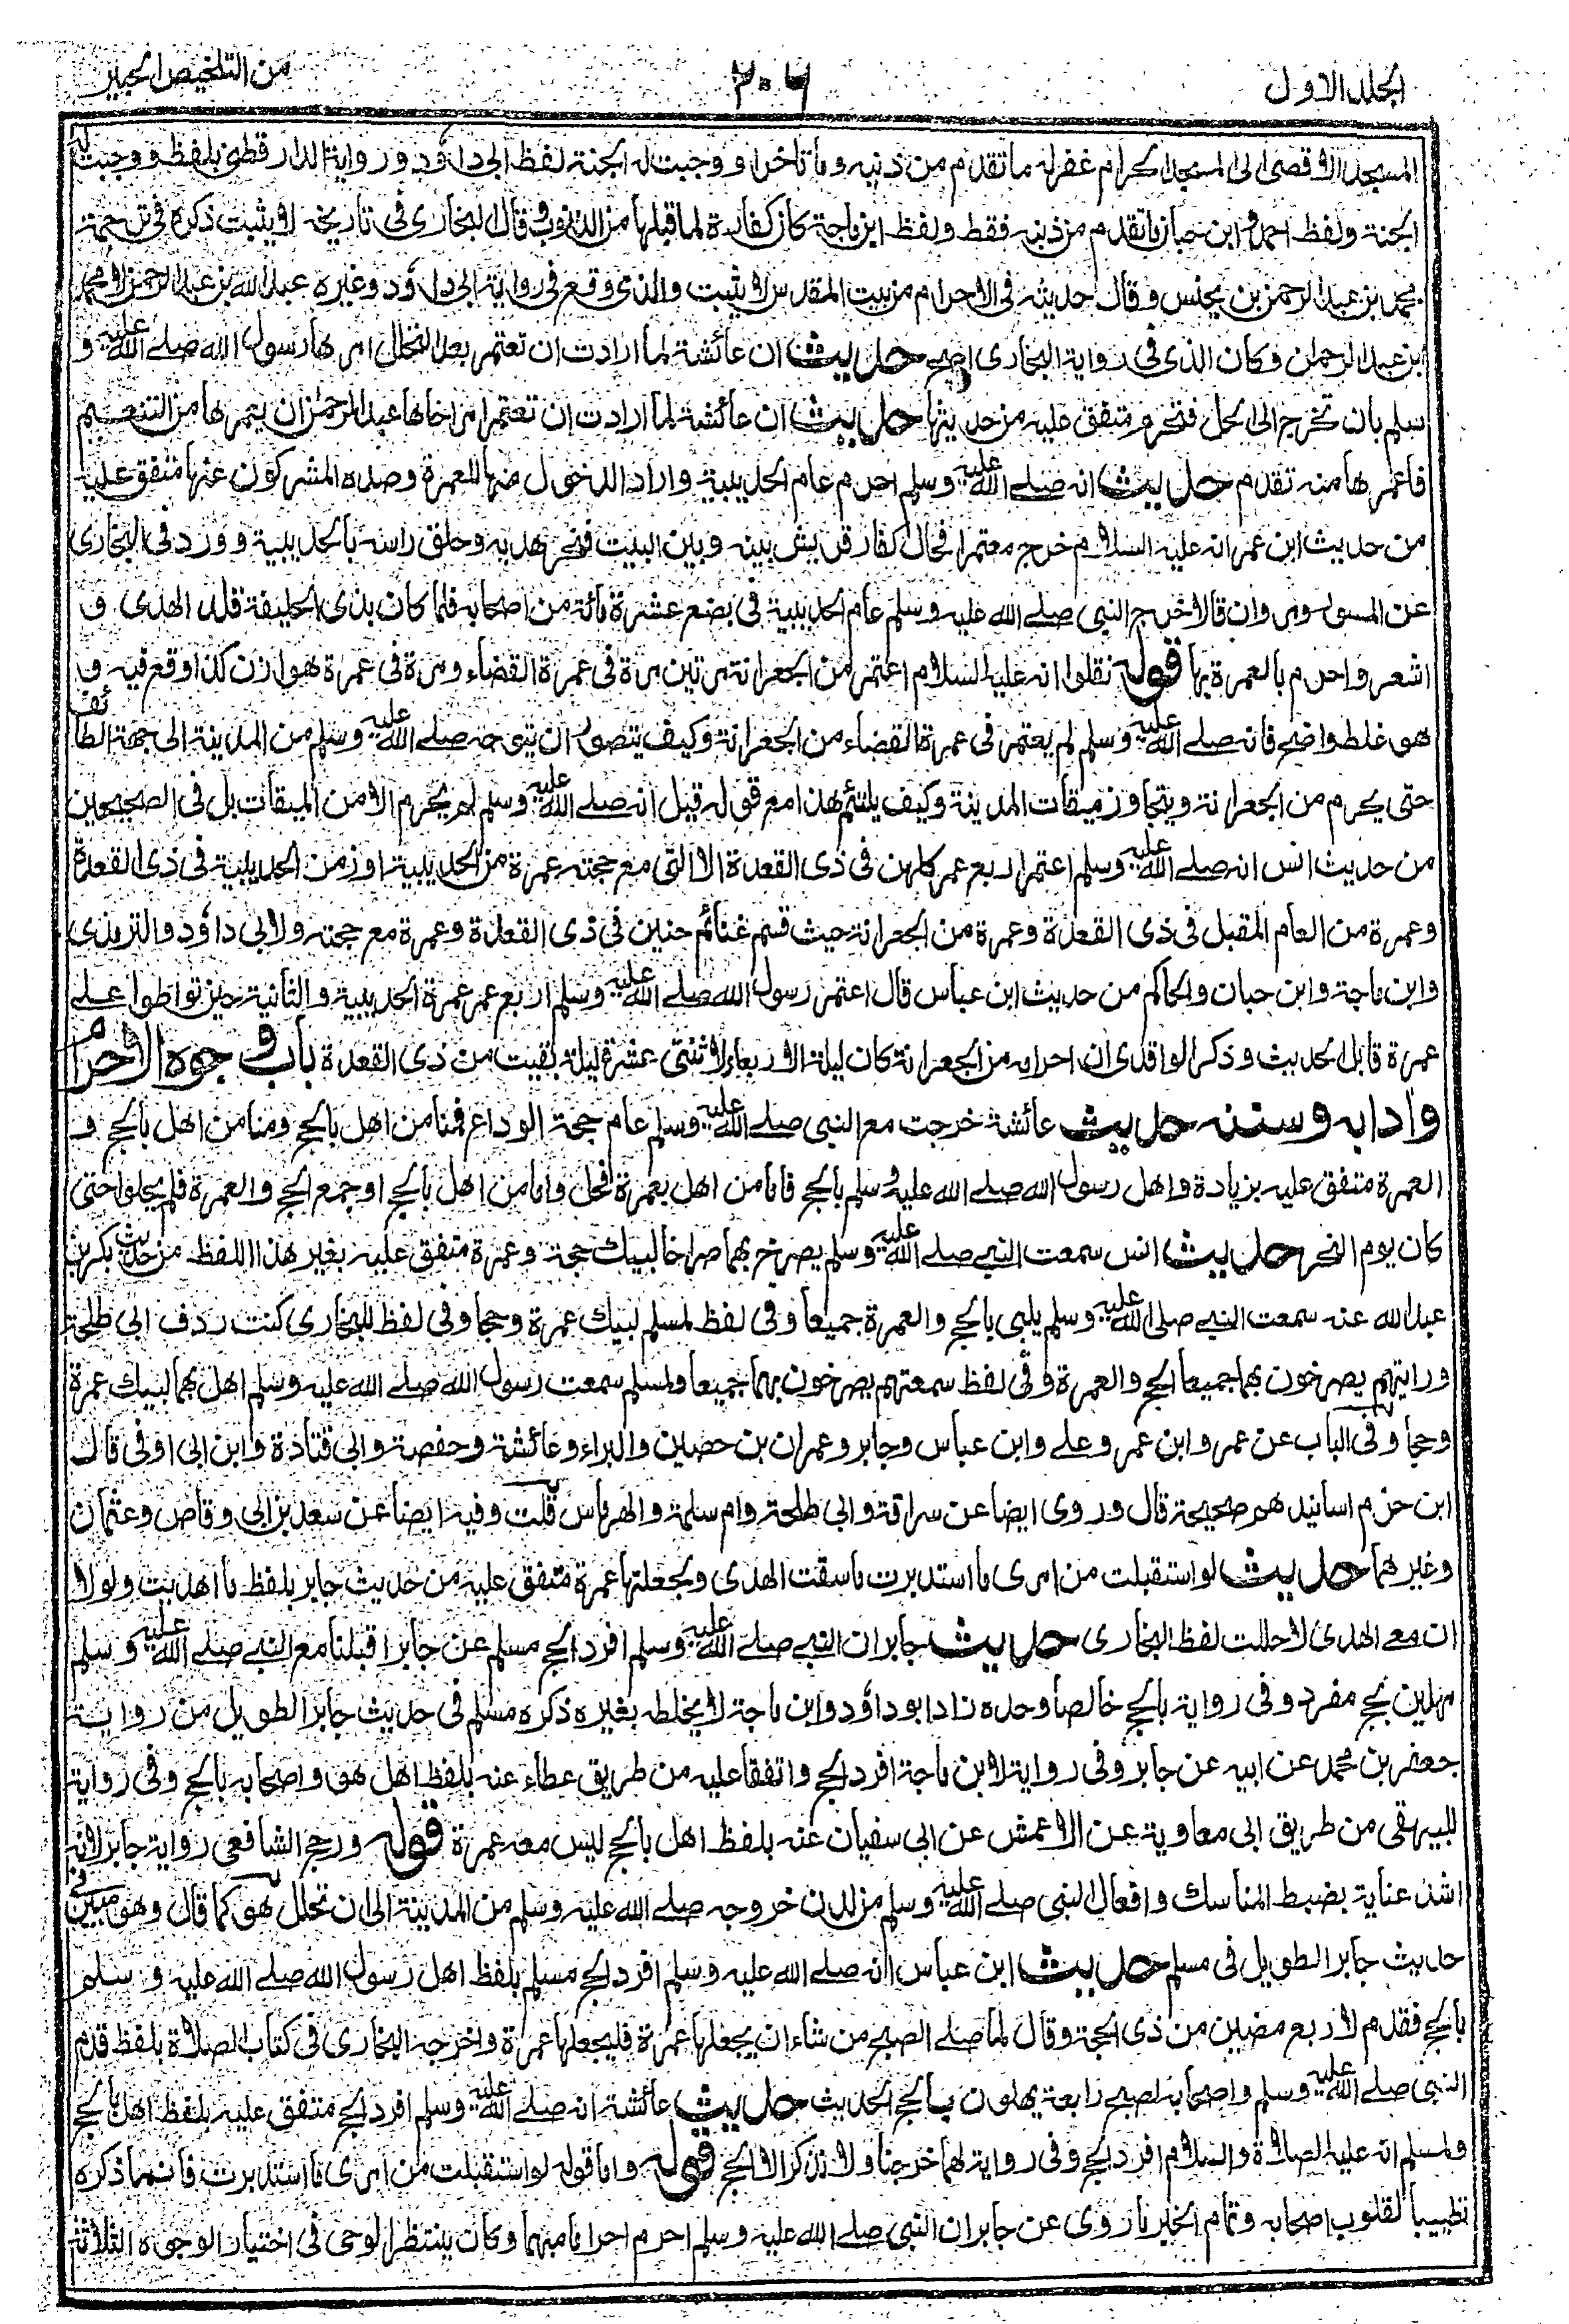 الجلد الاول
٢٠٦
من التلخيص الحبير
المسجد الاقصى الى المسجد الحرام غفر له ما تقدم من ذنبه وما تاخر او وجبت له الجنة لفظ ابى داؤد ورواية الدارقطنى بلفظ ووجبت له
الجنة ولفظ احمد و ابن حبان ما تقدم من ذنبه فقط ولفظ ابن ماجة كان كفارة لما قبلها من الذنوب وقال البخارى فى تاريخه لا يثبت ذكره فى ترجمة
محمد بن عبد الرحمن بن يحنس وقال حديثه فى الاحرام من بيت المقدس لا يثبت والذى وقع فى رواية ابى داؤد وغيره عبد الله بن عبد الرحمن لا محمد
ابن عبد الرحمن وكان الذى فى رواية البخارى اصح حديث ان عائشة لما ارادت ان تعتمر بعد التحلل امرها رسول الله صلے الله عليه و
سلم بان تخرج الى الحل فتحرم متفق عليه من حديثها حديث ان عائشة لما ارادت ان تعتمر امر اخاها عبد الرحمن ان يعمرها من التنعيم
فاعمرها منه تقدم حديث انه صلے الله عليه وسلم احرم عام الحديبية واراد الدخول منها للعمرة وصده المشركون عنها متفق عليه
من حديث ابن عمر انه عليه السلام خرج معتمرا فحال كفار قريش بينه وبين البيت فنحر هديه وحلق راسه بالحديبية وورد فى البخارى
عن المسور ومروان قالا خرج النبى صلے الله عليه وسلم عام الحديبية فى بضع عشرة مائة من اصحابه فلما كان بذى الحليفة قلد الهدى و
اشعر واحرم بالعمرة بها قوله نقلوا انه عليه السلام اعتمر من الجعرانة مرتين مرة فى عمرة القضاء ومرة فى عمرة هوازن كذا وقع فيه و
هو غلط واضح فانه صلے الله عليه وسلم لم يعتمر فى عمرة القضاء من الجعرانة وكيف يتصور ان يتوجه صلے الله عليه وسلم من المدينة الى جهة الطائف
حتى يحرم من الجعرانة ويتجاوز ميقات المدينة وكيف يلتئم هذا مع قوله قيل انه صلے الله عليه وسلم لم يحرم الا من الميقات بل فى الصحيحين
من حديث انس انه صلے الله عليه وسلم اعتمر اربع عمر كلهن فى ذى القعدة الا التى مع حجته عمرة من الحديبية او زمن الحديبية فى ذى القعدة
وعمرة من العام المقبل فى ذى القعدة وعمرة من الجعرانة حيث قسم غنائم حنين فى ذى القعدة وعمرة مع حجته ولابى داؤد والترمذى
وابن ماجة وابن حبان والحاكم من حديث ابن عباس قال اعتمر رسول الله صلے الله عليه وسلم اربع عمر عمرة الحديبية والثانية حين تواطوا علے
عمرة قابل الحديث وذكر الواقدى ان احرامه من الجعرانة كان ليلة الاربعاء لاثنتى عشرة ليلة بقيت من ذى القعدة باب وجوه الاحرام
وادابه وسننه حديث عائشة خرجت مع النبى صلے الله عليه وسلم عام حجة الوداع فمنا من اهل بالحج ومنا من اهل بالحج و
العمرة متفق عليه بزيادة واهل رسول الله صلے الله عليه وسلم بالحج فاما من اهل بعمرة فحل واما من اهل بالحج او جمع الحج والعمرة فلم يحلوا حتى
كان يوم النحر حديث انس سمعت النبے صلے الله عليه وسلم يصرخ بهما صراخا لبيك حجة وعمرة متفق عليه بغير هذا اللفظ من حديث بكر بن
عبد الله عنه سمعت النبے صلى الله عليه وسلم يلبى بالحج والعمرة جميعا وفى لفظ لمسلم لبيك عمرة وحجا وفى لفظ للبخارى كنت ردف ابى طلحة
ورايتهم يصرخون بهما جميعا الحج والعمرة وفى لفظ سمعتهم يصرخون بهما جميعا ولمسلم سمعت رسول الله صلے الله عليه وسلم اهل بهما لبيك عمرة
وحجا وفى الباب عن عمر وابن عمر وعلے وابن عباس وجابر وعمران بن حصين والبراء وعائشة وحفصة وابى قتادة وابن ابى اوفى قال
ابن حزم اسانيدهم صحيحة قال وروى ايضا عن سراقة وابى طلحة وام سلمة والهرماس قلت وفيه ايضا عن سعد بن ابى وقاص وعثمان
وغيرهما حديث لو استقبلت من امرى ما استدبرت ما سقت الهدى ولجعلتها عمرة متفق عليه من حديث جابر بلفظ ما اهديت ولولا
ان معے الهدى لاحللت لفظ البخارى حديث جابر ان النبے صلے الله عليه وسلم افرد الحج مسلم عن جابر اقبلنا مع النبے صلے الله عليه وسلم
مهلين بحج مفرد وفى رواية بالحج خالصا وحده زاد ابو داؤد وابن ماجة لا يخلطه بغيره ذكره مسلم فى حديث جابر الطويل من رواية
جعفر بن محمد عن ابيه عن جابر وفى رواية لابن ماجة افرد الحج واتفقا عليه من طريق عطاء عنه بلفظ اهل هو واصحابه بالحج وفى رواية
للبيهقى من طريق ابى معاوية عن الاعمش عن ابى سفيان عنه بلفظ اهل بالحج ليس معه عمرة قوله ورجح الشافعى رواية جابر لانه
اشد عناية بضبط المناسك وافعال النبى صلے الله عليه وسلم من لدن خروجه صلے الله عليه وسلم من المدينة الى ان تحلل هو كما قال وهو مبين فى
حديث جابر الطويل فى مسلم حديث ابن عباس انه صلے الله عليه وسلم افرد الحج مسلم بلفظ اهل رسول الله صلے الله عليه وسلم
بالحج فقدم لاربع مضين من ذى الحجة وقال لما صلے الصبح من شاء ان يجعلها عمرة فليجعلها عمرة واخرجه البخارى فى كتاب الصلاة بلفظ قدم
النبى صلے الله عليه وسلم واصحابه لصبح رابعة يهلون بالحج الحديث حديث عائشة انه صلے الله عليه وسلم افرد الحج متفق عليه بلفظ اهل بالحج
ولمسلم انه عليه الصلاة والسلام افرد الحج وفى رواية لهما خرجنا ولا نذكر الا الحج قوله واما قوله لو استقبلت من امرى ما استدبرت فانما ذكره
تطييبا لقلوب اصحابه وتمام الخبر ما روى عن جابر ان النبى صلے الله عليه وسلم احرم احراما مبهما وكان ينتظر الوحى فى اختيار الوجوه الثلاثة